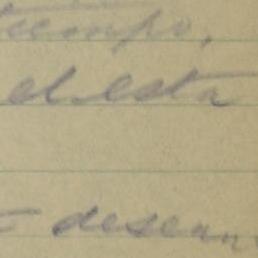 tiempo,
el esta
desean